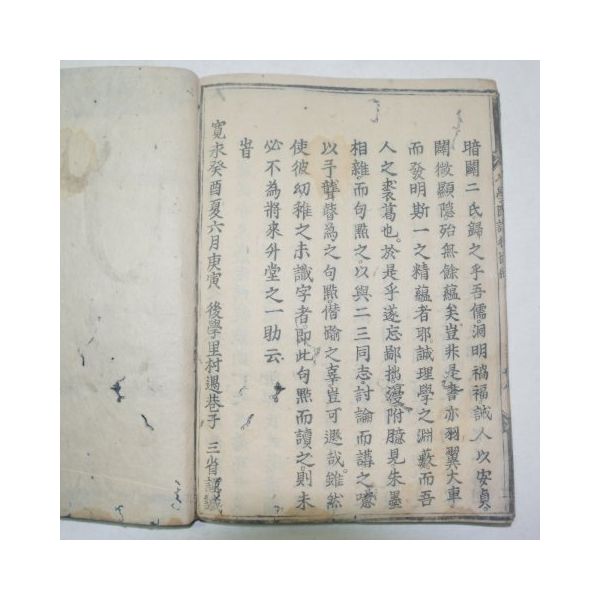 暗闢二氏歸之乎吾儒。洞明禍福誠人以安貞。
闡微顯隱殆無餘蘊矣豈非是書亦羽翼大車
而發明斯一之精蘊者耶誠理學之淵藪而吾
人之裘葛也。於是乎遂忘鄙拙。謾附臆見朱墨
相雜。而句點之。以與二三同志。討論而講之。噫
以予聾瞽為之句點。僭踰之辜豈可遯哉。雖然
使彼幼稚之未識字者。即此句點而讀之。則未
必不為將來升堂之一助云
旹
寬永癸酉夏六月庚寅 後學里村遇巷子 三省謹誌